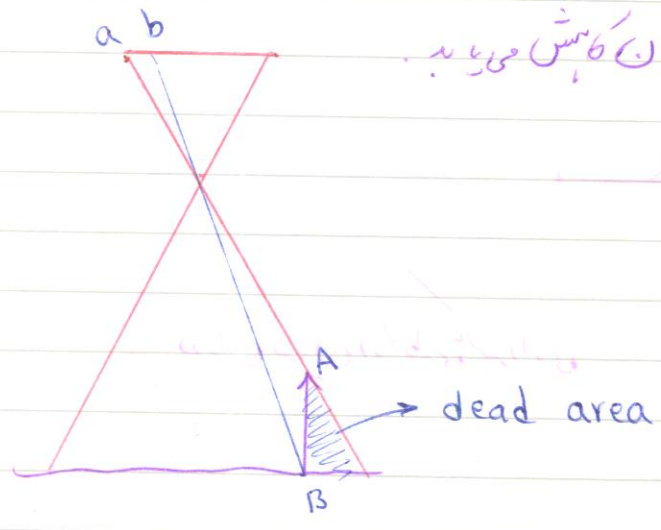 a b
ن کاهش می‌یابد.
A
dead area
B